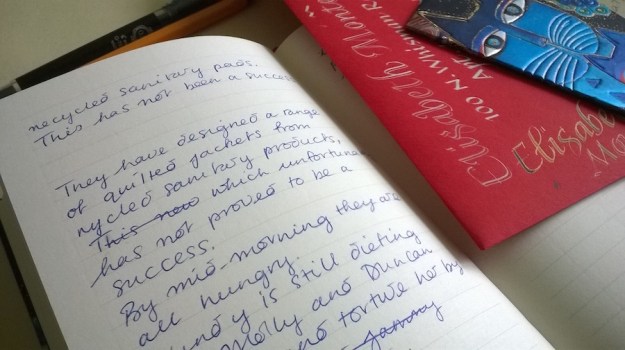 recycled sanitary pads.
This has not been a success
They have designed a range
of quilted jackets from
rycled sanitary products,
This now which unfortuna
has not proved to be a
success.
By mid-morning they are
all hungry.
is still dieting
Molly and Duncan
torture her by
Elisabeth
100 N. Whisman R
Apt
Elisabe